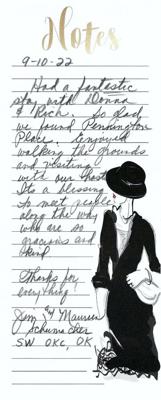 Notes
9-10-22
Had a fantastic
stay with Donna
& Rich. So Glad
we found Pennington
Place. Enjoyed
walking the grounds
and visiting
with our Host
Its a blessing
to meet people
along the way
who are so
gracious and
kind
Thanks for
everything!
Jim & Maureen
Schumacher
SW OKC, OK